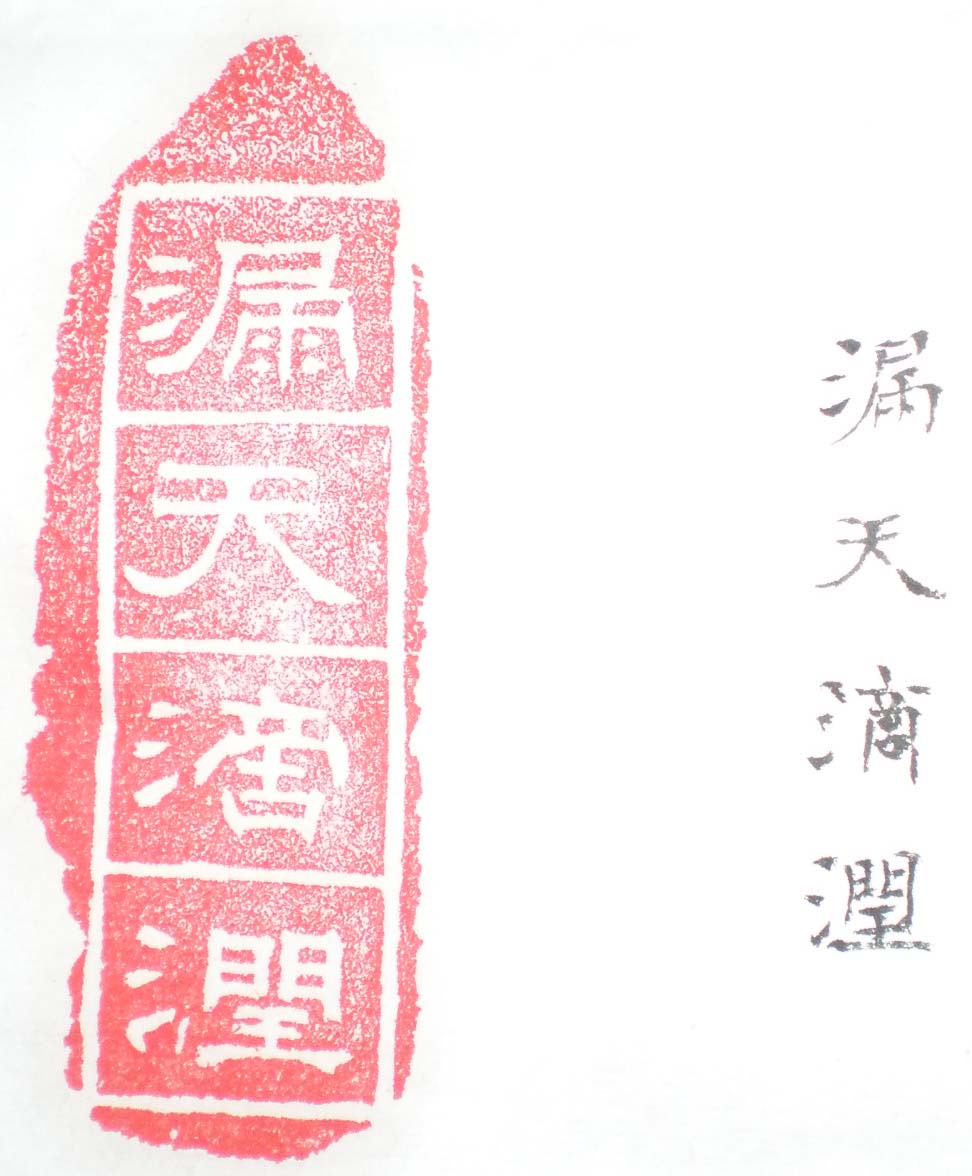 漏天滴潤
漏天滴潤